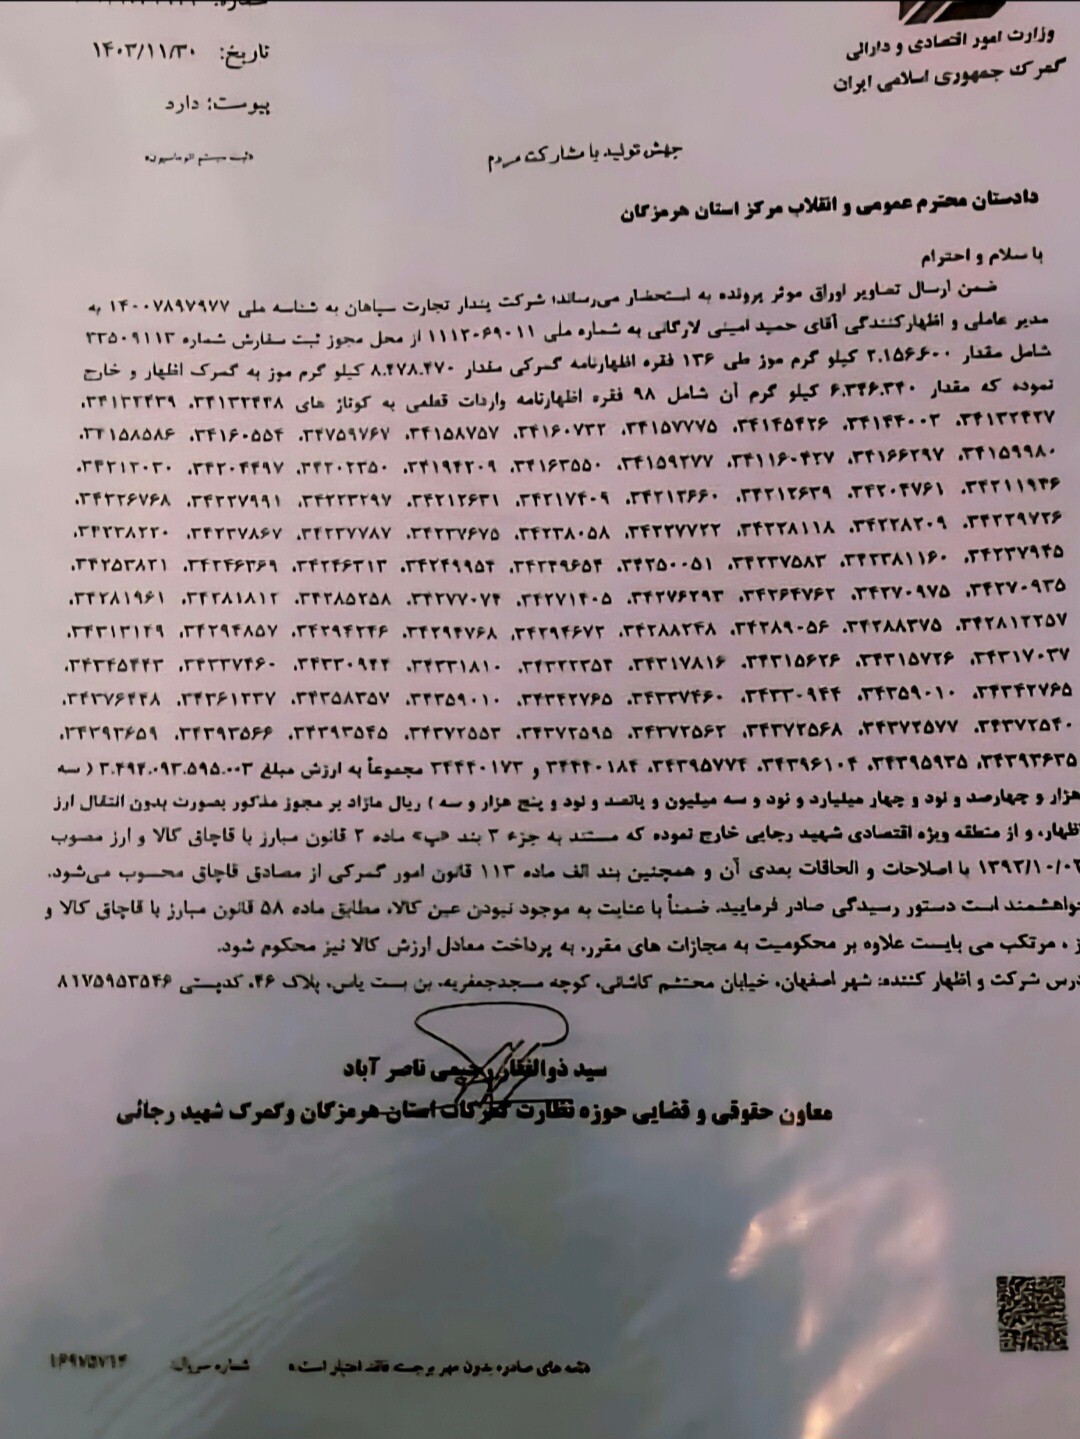 وزارت امور اقتصادی و دارائی
گمرک جمهوری اسلامی ایران
تاریخ: ۱۴۰۳/۱۱/۳۰
پیوست: دارد
«ثبت سیستم اتوماسیون»
جهش تولید با مشارکت مردم
دادستان محترم عمومی و انقلاب مرکز استان هرمزگان
با سلام و احترام
ضمن ارسال تصاویر اوراق موثر پرونده به استحضار می‌رساند؛ شرکت پندار تجارت سپاهان به شناسه ملی ۱۴۰۰۷۸۹۷۹۷۷ به
مدیر عاملی و اظهارکنندگی آقای حمید امینی لارگانی به شماره ملی ۱۱۱۲۰۶۹۰۱۱ از محل مجوز ثبت سفارش شماره ۳۳۵۰۹۱۱۳
شامل مقدار ۲.۱۵۶.۶۰۰ کیلو گرم موز طی ۱۳۶ فقره اظهارنامه گمرکی مقدار ۸.۴۷۸.۴۷۰ کیلو گرم موز به گمرک اظهار و خارج
نموده که مقدار ۶.۳۴۶.۳۴۰ کیلو گرم آن شامل ۹۸ فقره اظهارنامه واردات قطعی به کوتاژ های ۳۴۱۳۲۴۲۸، ۳۴۱۳۲۴۳۹،
۳۴۱۳۲۴۲۷، ۳۴۱۴۴۰۰۲، ۳۴۱۴۵۴۲۶، ۳۴۱۵۷۷۷۵، ۳۴۱۶۰۷۳۲، ۳۴۱۵۸۷۵۷، ۳۴۷۵۹۷۶۷، ۳۴۱۶۰۵۵۴، ۳۴۱۵۸۵۸۶،
۳۴۱۵۹۹۸۰، ۳۴۱۶۶۲۹۷، ۳۴۱۱۶۰۴۲۷، ۳۴۱۵۹۲۷۷، ۳۴۱۶۳۵۵۰، ۳۴۱۹۴۲۰۹، ۳۴۲۰۲۳۵۰، ۳۴۲۰۴۴۹۷، ۳۴۲۱۲۰۲۰،
۳۴۲۱۱۹۴۶، ۳۴۲۰۴۷۶۱، ۳۴۲۱۲۶۳۹، ۳۴۲۱۲۶۶۰، ۳۴۲۱۷۴۰۹، ۳۴۲۱۲۶۳۱، ۳۴۲۲۳۲۹۷، ۳۴۲۲۷۹۹۱، ۳۴۲۲۶۷۶۸،
۳۴۲۲۹۷۲۶، ۳۴۲۲۸۲۰۹، ۳۴۲۲۸۱۱۸، ۳۴۲۲۷۷۲۲، ۳۴۲۳۸۰۵۸، ۳۴۲۳۷۶۷۵، ۳۴۲۳۷۷۸۷، ۳۴۲۳۷۸۶۷، ۳۴۲۳۸۲۲۰،
۳۴۲۳۷۹۴۵، ۳۴۲۳۸۱۱۶۰، ۳۴۲۳۷۵۸۳، ۳۴۲۵۰۰۵۱، ۳۴۲۴۹۶۵۴، ۳۴۲۴۹۹۵۴، ۳۴۲۴۶۳۱۳، ۳۴۲۴۶۳۶۹، ۳۴۲۵۳۸۲۱،
۳۴۲۷۰۹۳۵، ۳۴۲۷۰۹۷۵، ۳۴۲۶۴۷۶۲، ۳۴۲۷۶۲۹۳، ۳۴۲۷۱۴۰۵، ۳۴۲۷۷۰۷۴، ۳۴۲۸۵۲۵۸، ۳۴۲۸۱۸۱۲، ۳۴۲۸۱۹۶۱،
۳۴۲۸۱۲۲۵۷، ۳۴۲۸۸۳۷۵، ۳۴۲۸۹۰۵۶، ۳۴۲۸۸۲۴۸، ۳۴۲۹۴۶۷۲، ۳۴۲۹۴۷۶۸، ۳۴۲۹۴۲۴۶، ۳۴۲۹۴۸۵۷، ۳۴۳۱۳۱۴۹،
۳۴۳۱۷۰۳۷، ۳۴۳۱۵۷۲۶، ۳۴۳۱۵۶۲۶، ۳۴۳۱۷۸۱۶، ۳۴۳۲۲۳۵۴، ۳۴۳۳۱۸۱۰، ۳۴۳۳۰۹۴۴، ۳۴۳۳۷۴۶۰، ۳۴۳۴۵۴۴۳،
۳۴۳۴۲۷۶۵، ۳۴۳۵۹۰۱۰، ۳۴۳۳۰۹۴۴، ۳۴۳۳۷۴۶۰، ۳۴۳۴۲۷۶۵، ۳۴۳۵۹۰۱۰، ۳۴۳۵۸۳۵۷، ۳۴۳۶۱۲۳۷، ۳۴۳۷۶۴۴۸،
۳۴۳۷۲۵۴۰، ۳۴۳۷۲۵۷۷، ۳۴۳۷۲۵۶۸، ۳۴۳۷۲۵۶۲، ۳۴۳۷۲۵۹۵، ۳۴۳۷۲۵۵۳، ۳۴۳۹۳۵۴۵، ۳۴۳۹۳۵۶۶، ۳۴۳۹۳۶۵۹،
۳۴۳۹۳۶۳۵، ۳۴۳۹۵۹۳۵، ۳۴۳۹۶۱۰۴، ۳۴۳۹۵۷۷۴، ۳۴۴۴۰۱۸۴ و ۳۴۴۴۰۱۷۳ مجموعاً به ارزش مبلغ ۳.۴۹۴.۰۹۳.۵۹۵.۰۰۳ ( سه
هزار و چهارصد و نود و چهار میلیارد و نود و سه میلیون و پانصد و نود و پنج هزار و سه ) ریال مازاد بر مجوز مذکور بصورت بدون انتقال ارز
اظهار، و از منطقه ویژه اقتصادی شهید رجایی خارج نموده که مستند به جزء ۳ بند «پ» ماده ۲ قانون مبارز با قاچاق کالا و ارز مصوب
۱۳۹۲/۱۰/۰۳ با اصلاحات و الحاقات بعدی آن و همچنین بند الف ماده ۱۱۳ قانون امور گمرکی از مصادق قاچاق محسوب می‌شود.
خواهشمند است دستور رسیدگی صادر فرمایید. ضمناً با عنایت به موجود نبودن عین کالا، مطابق ماده ۵۸ قانون مبارز با قاچاق کالا و
ز ، مرتکب می بایست علاوه بر محکومیت به مجازات های مقرر، به پرداخت معادل ارزش کالا نیز محکوم شود.
درس شرکت و اظهار کننده: شهر اصفهان، خیابان محتشم کاشانی، کوچه مسجدجعفریه، بن بست یاس، پلاک ۴۶، کدپستی ۸۱۷۵۹۵۳۵۴۶
سید ذوالفقار رحیمی ناصر آباد
معاون حقوقی و قضایی حوزه نظارت گمرکات استان هرمزگان و گمرک شهید رجائی
نسخه های صادره بدون مهر برجسته فاقد اعتبار است » شماره سریال: ۱۶۹۷۵۷۱۴